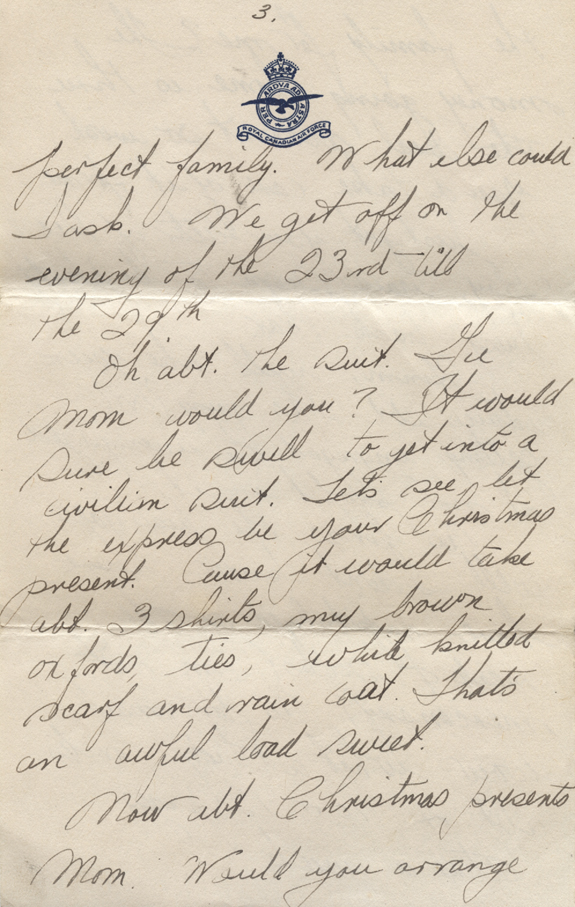 3.
PER ARDVA AD ASTRA
ROYAL CANADIAN AIR FORCE
perfect family. What else could
I ask. We get off on the
evening of the 23rd till
the 29th
Oh abt. the suit. Gee
Mom would you? It would
sure be swell to get into a
civilian suit. Let's see, let
the express be your Christmas
present. Cause it would take
abt. 3 shirts, my brown
oxfords, ties, white knitted
scarf and rain coat. That's
an awful load sweet.
Now abt. Christmas presents
Mom. Would you arrange